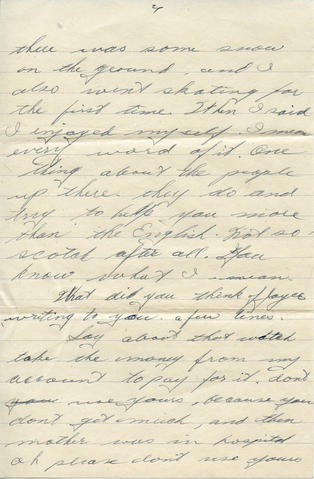 4
there was some snow
on the ground, and I
also went skating for
the first time. When I said
I enjoyed myself. I mean
every word of it. One
thing about the people
up there. they do and
try to help you more
than the English. Not so
scotch after all. You
know what I mean.
What did you think of Joyce
writing to you. a few lines.
Say about that watch
take the money from my
account to pay for it. don't
use yours, because you
don't get much, and then
mother was in hospital
oh please don't use yours